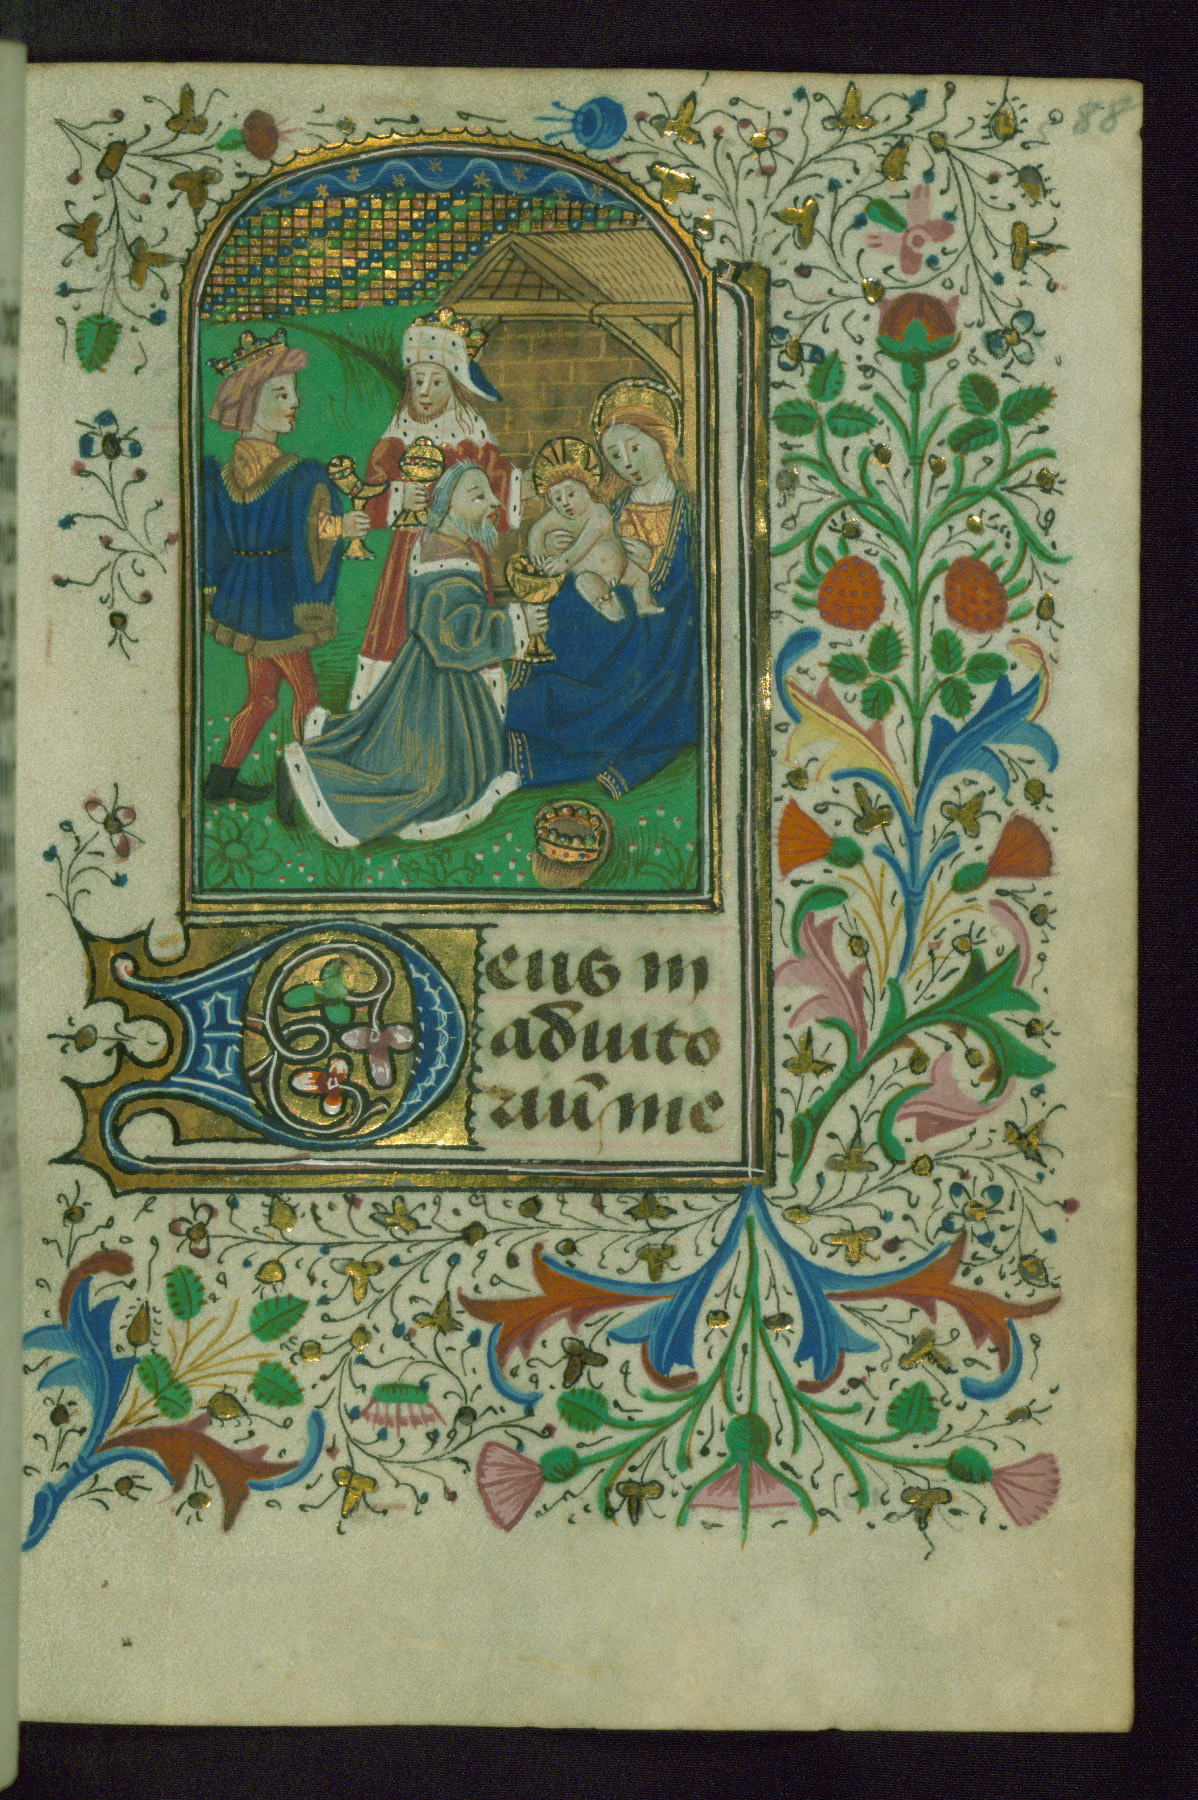 88
Deus in
adiuto
riū me